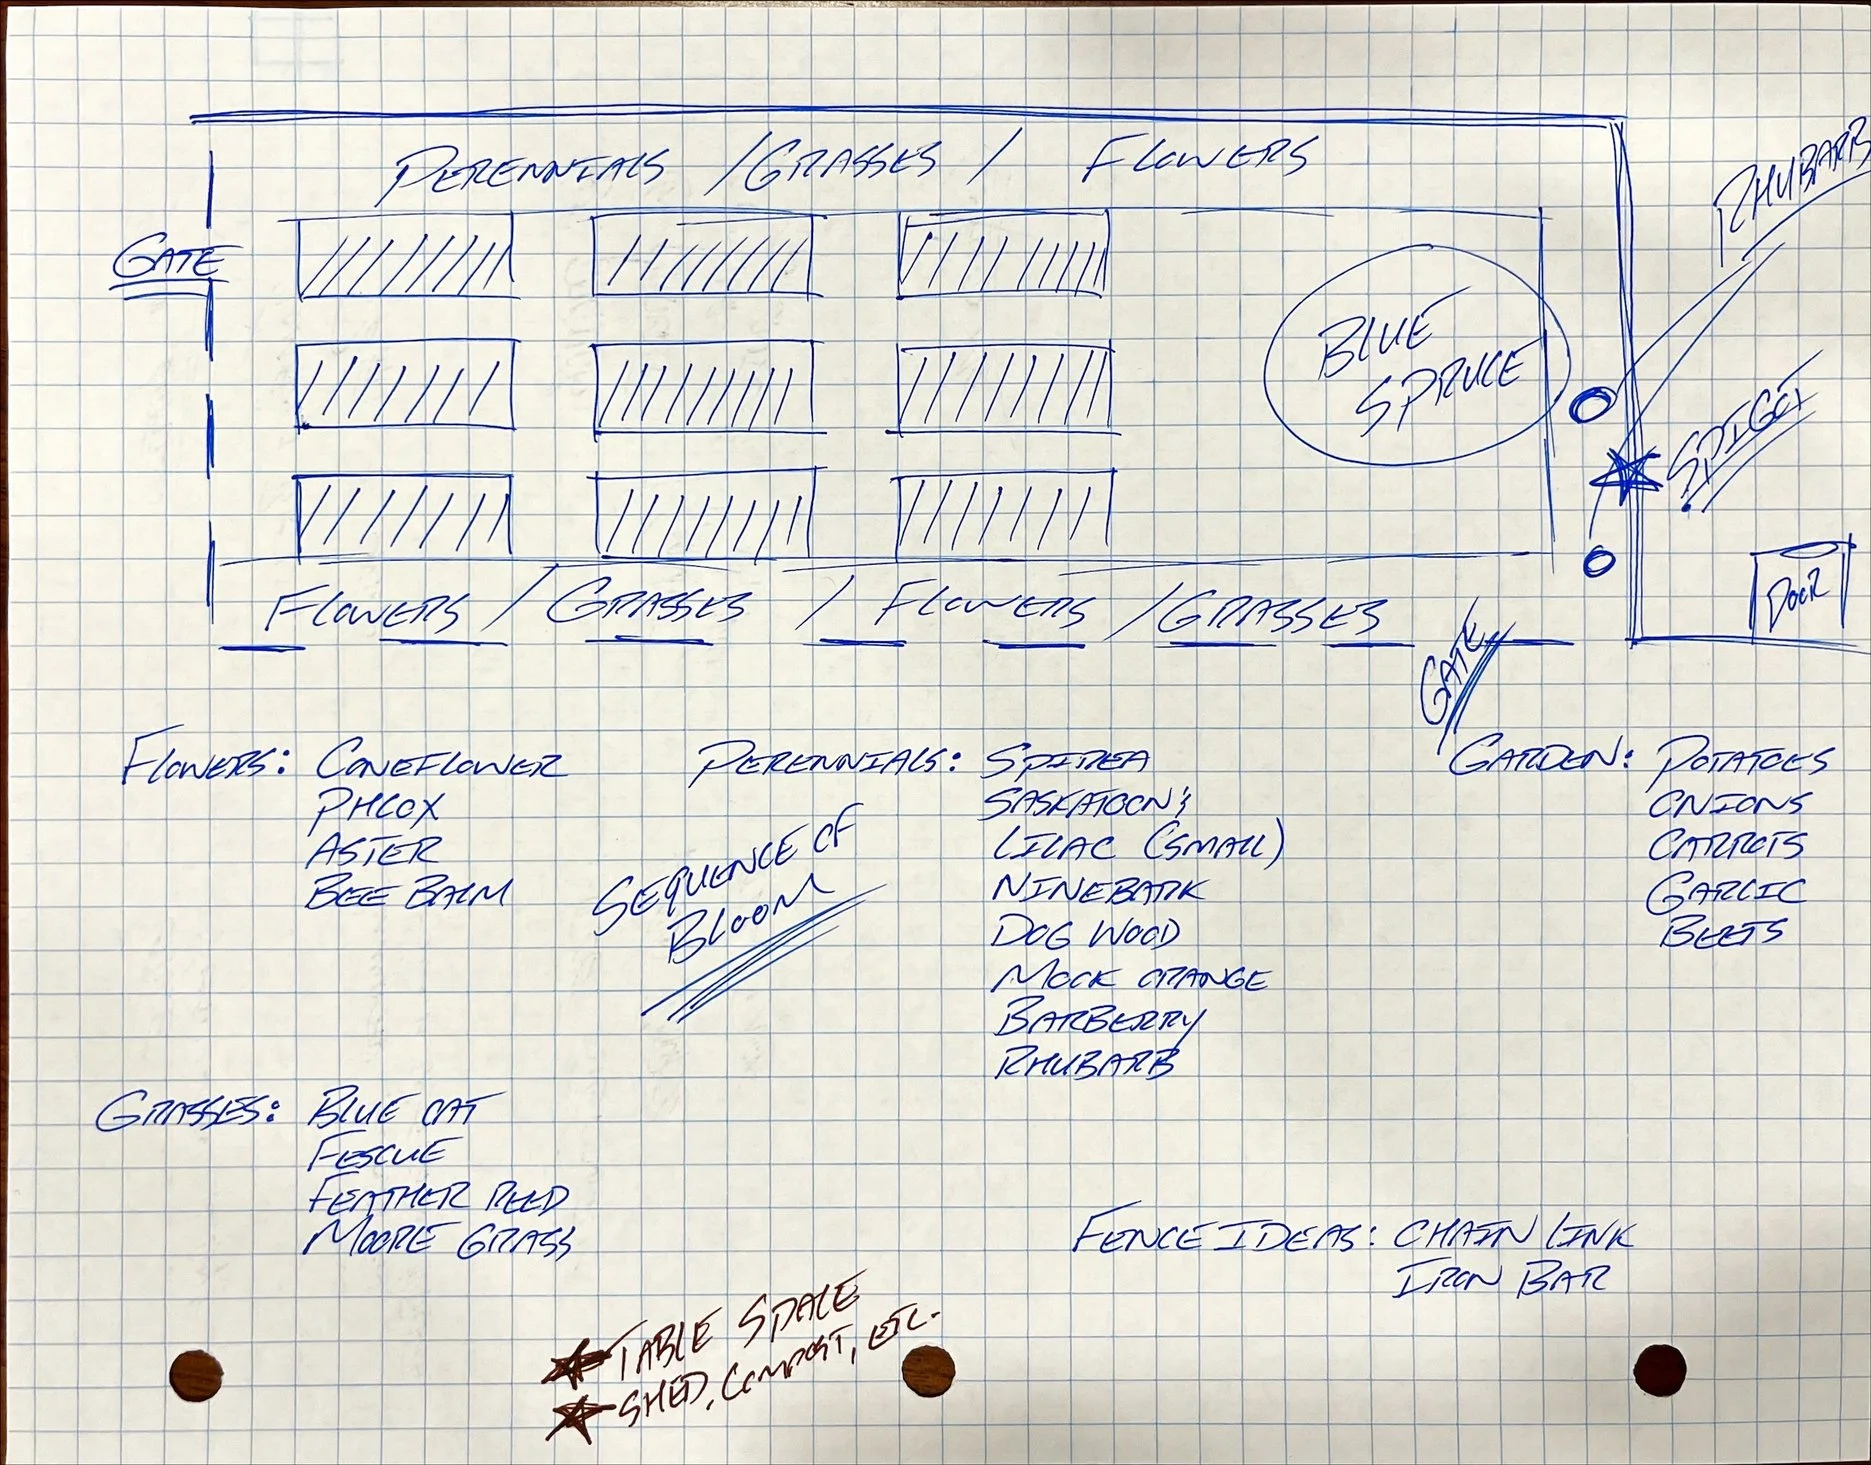 PERENNIALS / GRASSES / FLOWERS
RHUBARB
GATE
BLUE
SPRUCE
SPIGOT
DOOR
FLOWERS / GRASSES / FLOWERS / GRASSES
GATE
FLOWERS: CONEFLOWER
PHLOX
ASTER
BEE BALM
SEQUENCE OF
BLOOM
PERENNIALS: SPIREA
SASKATOON'S
LILAC (SMALL)
NINEBARK
DOG WOOD
MOCK ORANGE
BARBERRY
RHUBARB
GARDEN: POTATOES
ONIONS
CARROTS
GARLIC
BEETS
GRASSES: BLUE OAT
FESCUE
FEATHER REED
MOORE GRASS
FENCE IDEAS: CHAIN LINK
IRON BAR
★ TABLE SPACE
★ SHED, COMPOST, ETC.